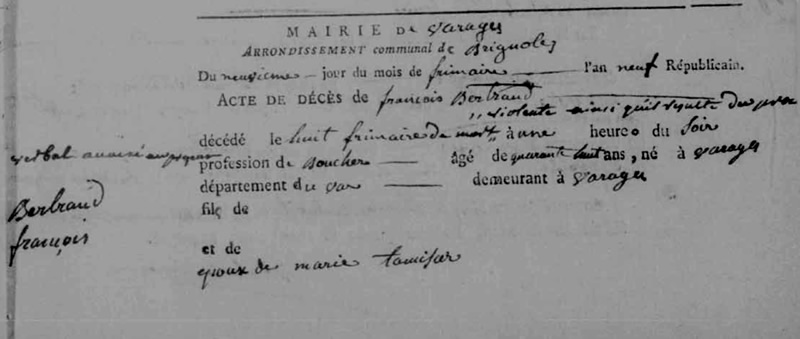 MAIRIE de varages
ARRONDISSEMENT communal de Brignoles
Du neuvieme jour du mois de frimaire l'an neuf Républicain.
ACTE DE DÉCÈS de françois Bertrand
violente ainsi qu'il resulte du proc
décédé le huit frimaire de mort à une heure du Soir
verbal annexé au present
profession de Boucher âgé de quarante huit ans, né à varages
département du var demeurant à varages
fils de
Bertrand
françois
et de
epoux de marie tamisar